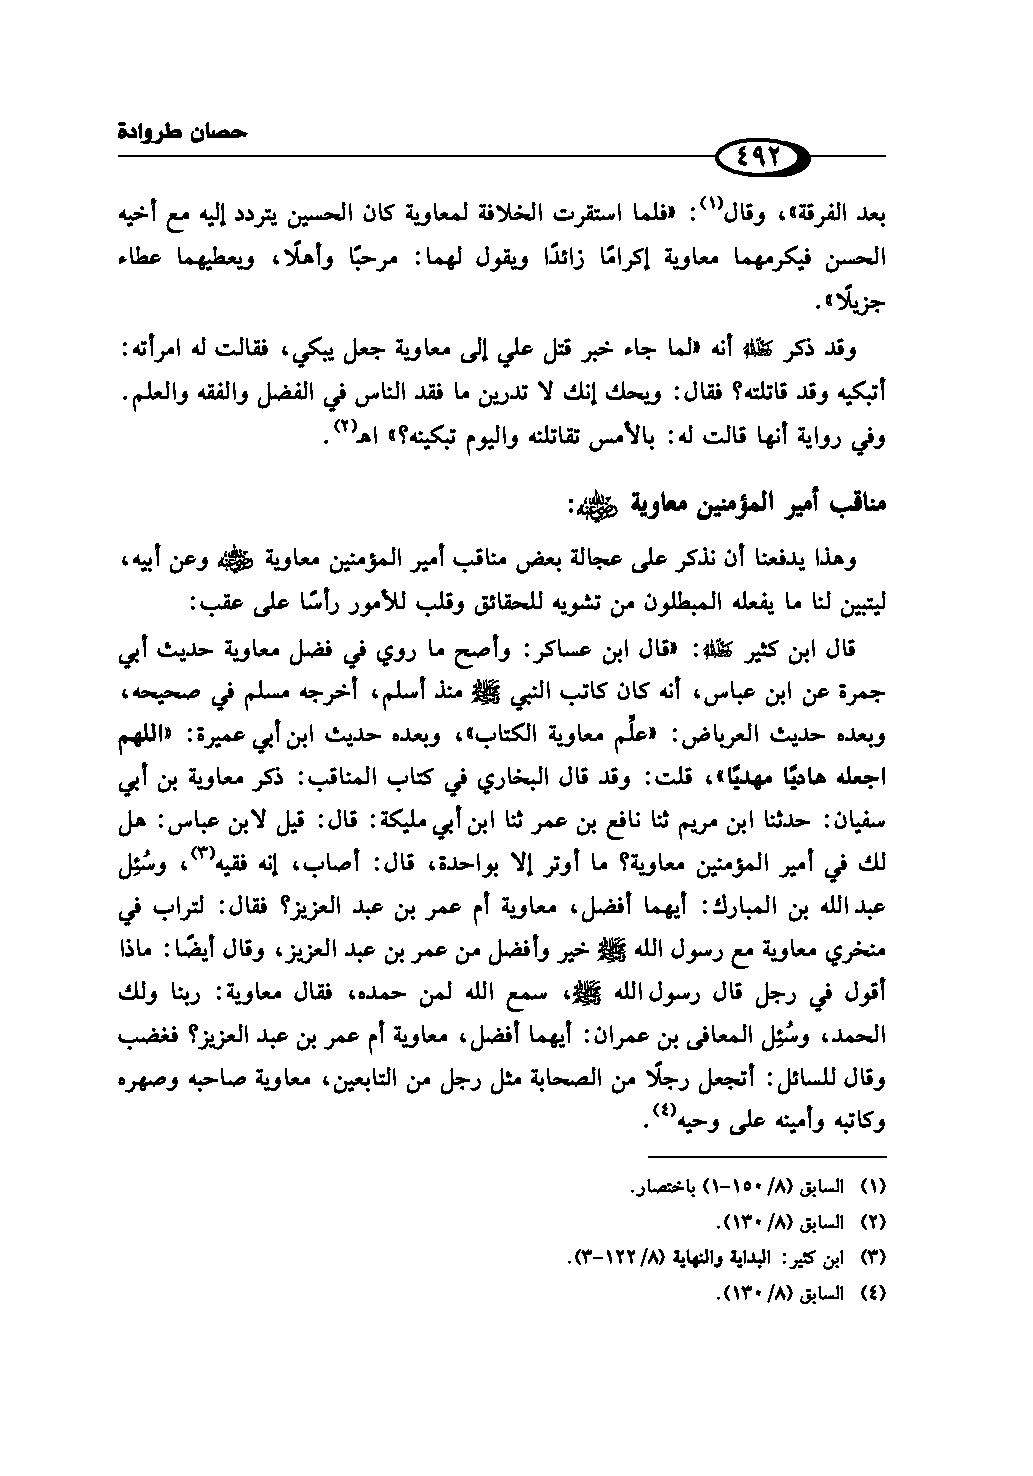 حصان طروادة
٤٩٢
بعد الفرقة»، وقال(١): «فلما استقرت الخلافة لمعاوية كان الحسين يتردد إليه مع أخيه
الحسن فيكرمهما معاوية إكرامًا زائدًا ويقول لهما: مرحبًا وأهلًا، ويعطيهما عطاء
جزيلًا».
وقد ذكر رَحِمَهُ ٱللَّهُ أنه «لما جاء خبر قتل علي إلى معاوية جعل يبكي، فقالت له امرأته:
أتبكيه وقد قاتلته؟ فقال: ويحك إنك لا تدرين ما فقد الناس في الفضل والفقه والعلم.
وفي رواية أنها قالت له: بالأمس تقاتلنه واليوم تبكينه؟» اهـ(٢).
مناقب أمير المؤمنين معاوية رضي الله عنه:
وهذا يدفعنا أن نذكر على عجالة بعض مناقب أمير المؤمنين معاوية رضي الله عنه وعن أبيه،
ليتبين لنا ما يفعله المبطلون من تشويه للحقائق وقلب للأمور رأسًا على عقب:
قال ابن كثير رَحِمَهُ ٱللَّهُ: «قال ابن عساكر: وأصح ما روي في فضل معاوية حديث أبي
جمرة عن ابن عباس، أنه كان كاتب النبي ﷺ منذ أسلم، أخرجه مسلم في صحيحه،
وبعده حديث العرباض: «علِّم معاوية الكتاب»، وبعده حديث ابن أبي عميرة: «اللهم
اجعله هاديًا مهديًا»، قلت: وقد قال البخاري في كتاب المناقب: ذكر معاوية بن أبي
سفيان: حدثنا ابن مريم ثنا نافع بن عمر ثنا ابن أبي مليكة: قال: قيل لابن عباس: هل
لك في أمير المؤمنين معاوية؟ ما أوتر إلا بواحدة، قال: أصاب، إنه فقيه(٣)، وسُئِل
عبد الله بن المبارك: أيهما أفضل، معاوية أم عمر بن عبد العزيز؟ فقال: لتراب في
منخري معاوية مع رسول الله ﷺ خير وأفضل من عمر بن عبد العزيز، وقال أيضًا: ماذا
أقول في رجل قال رسول الله ﷺ، سمع الله لمن حمده، فقال معاوية: ربنا ولك
الحمد، وسُئِل المعافى بن عمران: أيهما أفضل، معاوية أم عمر بن عبد العزيز؟ فغضب
وقال للسائل: أتجعل رجلًا من الصحابة مثل رجل من التابعين، معاوية صاحبه وصهره
وكاتبه وأمينه على وحيه(٤).
(١) السابق (٨/ ١٥٠-١) باختصار.
(٢) السابق (٨/ ١٣٠).
(٣) ابن كثير: البداية والنهاية (٨/ ١٢٢-٣).
(٤) السابق (٨/ ١٣٠).